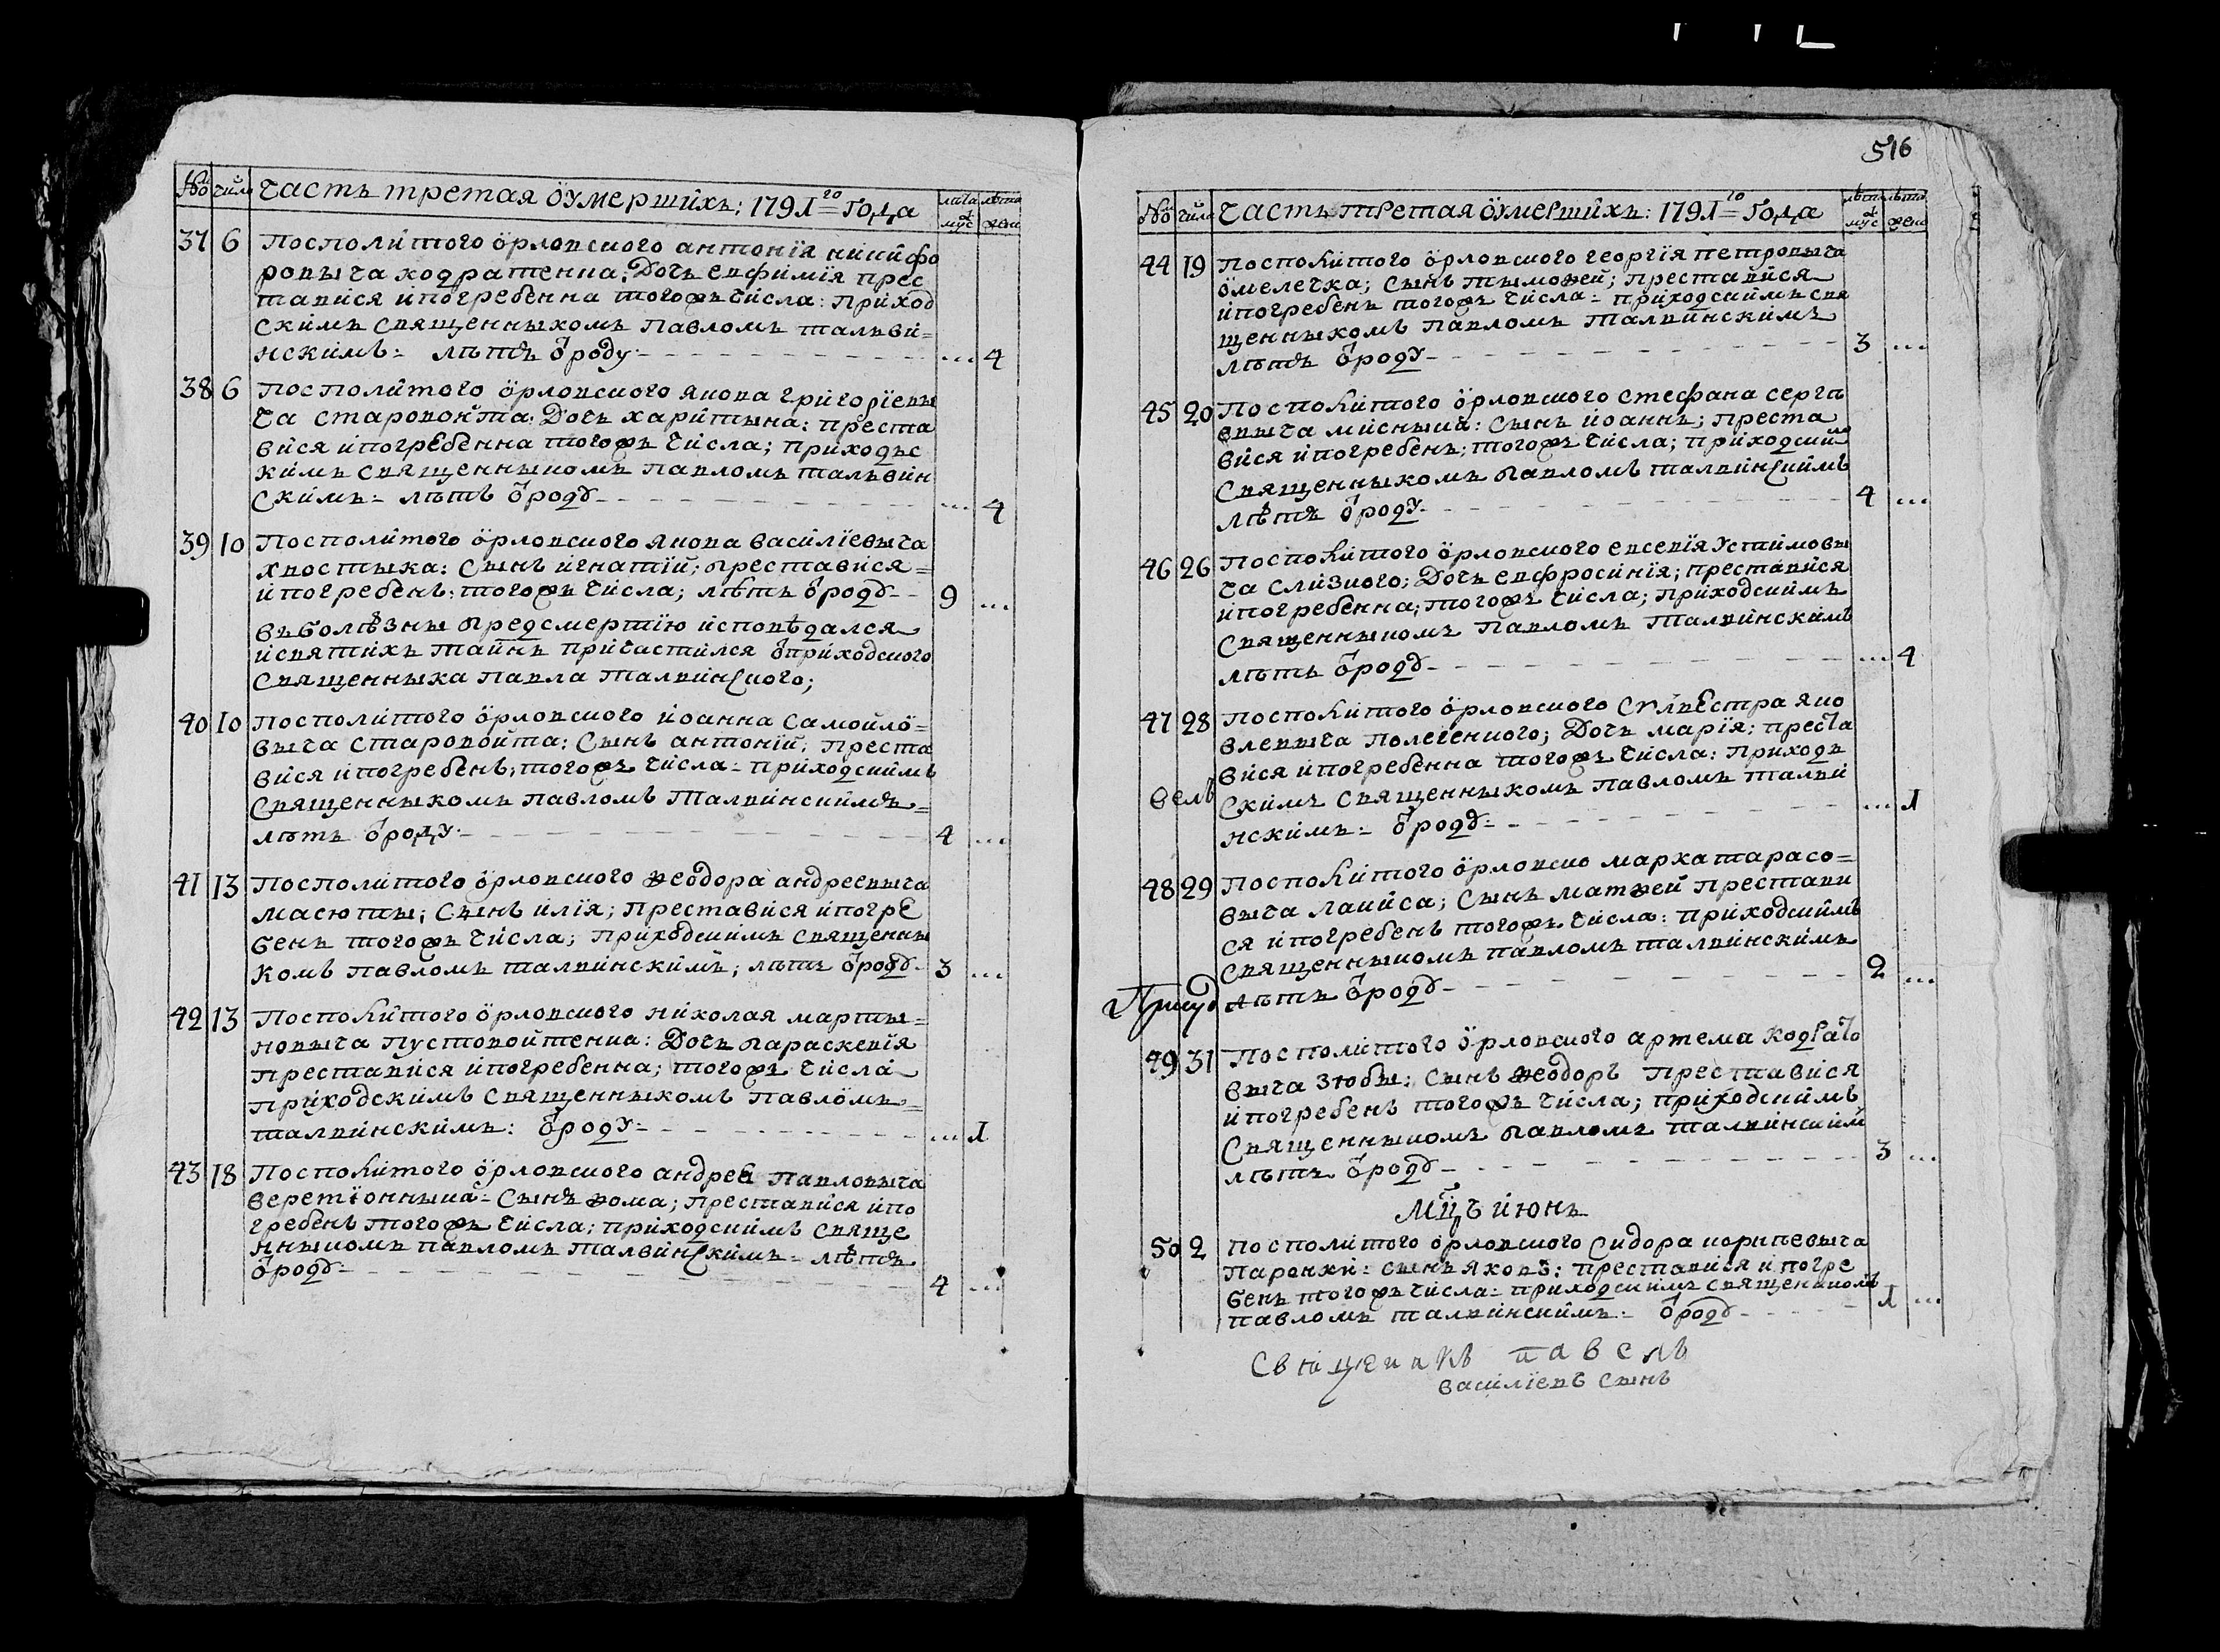 516
№ число Часть третая оумершихъ: 1791го Года лѣта муж лѣта жен
37 6 Посполитого орловского антонїя никифо
ровыча кодратенка; Дочь евфимїя прес
тавися ипогребенна тогожъ числа: Приход
скимъ священныкомъ Павломъ тальви=
нскимъ= лѣтъ ѿроду ... 4
38 6 Посполитого орловского якова григорїевы
ча старовойта: Дочь харитына: преста
вися ипогребенна тогожъ числа; приходъс
кимъ священныкомъ павломъ тальвин
скимъ= лѣтъ ѿроду ... 4
39 10 Посполитого орловского якова василїевыча
хвостыка: Сынъ игнатїй; преставися=
ипогребенъ: тогожъ числа; лѣтъ ѿроду 9 ...
въболѣзны предсмертїю исповѣдался
исвятихъ тайнъ причастился ѿприходского
священныка павла талвинского;
40 10 Посполитого орловского иоанна самойло=
выча старовойта: Сынъ антонїй; преста
вися ипогребенъ; тогожъ числа= приходскимъ
священныкомъ павломъ Талвинскимъ=
лѣтъ ѿроду 4 ...
41 13 Посполитого орловского ѳеодора андреевыча
масюты; Сынъ илїя; преставися ипогре
бенъ тогожъ числа; приходскимъ священны
комъ павломъ талвинскимъ; лѣтъ ѿроду 3 ...
42 13 Посполитого орловского николая марты=
новыча Пустовойтенка: Дочь параскевїя
преставися ипогребенна; тогожъ числа
приходскимъ священныкомъ павломъ=
талвинскимъ: ѿроду ... 1
43 18 Посполитого орловского андрея павловыча
веретїонныка= Сынъ ѳома; преставися ипо
гребенъ тогожъ числа; приходскимъ свяще
нныкомъ павломъ талвинскимъ= лѣтъ
ѿроду 4 ...
№ число Часть третая оумершихъ: 1791го Года лѣта муж лѣта жен
44 19 Посполитого орловского георгїя петровыча
омелечка; сынъ тымоѳей; преставися
ипогребенъ тогожъ числа= приходскимъ свя
щенныкомъ павломъ талвинскимъ
лѣтъ ѿроду 3 ...
45 20 Посполитого орловского стефана сергѣ
евыча мисныка: сынъ иоаннъ; преста
вися ипогребенъ; тогожъ числа; приходским
священныкомъ павломъ талвинскимъ
лѣтъ ѿроду 4 ...
46 26 Посполитого орловского евсевїя устимовы
ча слизкого; Дочь евфросинїя; преставися
ипогребенна; тогожъ числа; приходскимъ
священныкомъ павломъ талвинскимъ
лѣтъ ѿроду ... 4
47 28 Посполитого орловского силвестра яко
влевыча полегенкого; Дочь марїя; преста
вися ипогребенна тогожъ числа: приходъ
скимъ священныкомъ павломъ талви
нскимъ= ѿроду ... 1
48 29 Посполитого орловско марка тарасо=
выча лакиса; Сынъ матѳей преставы
ся ипогребенъ тогожъ числа: приходскимъ
священныкомъ павломъ талвинскимъ
лѣтъ ѿроду 2 ...
49 31 Посполитого орловского артема кодрато
выча зюбы: сынъ ѳеодоръ преставися
ипогребенъ тогожъ числа; приходскимъ
священныкомъ павломъ талвинским
лѣтъ ѿроду 3 ...
Мцъ июнь
50 2 Посполитого орловского сидора корнѣевыча
паронки: сынъ яковъ: преставися ипогре
бенъ тогожъ числа= приходскимъ священыкомъ
павломъ талвинскимъ= ѿроду 1 ...
Священикъ павелъ
василїевъ сынъ